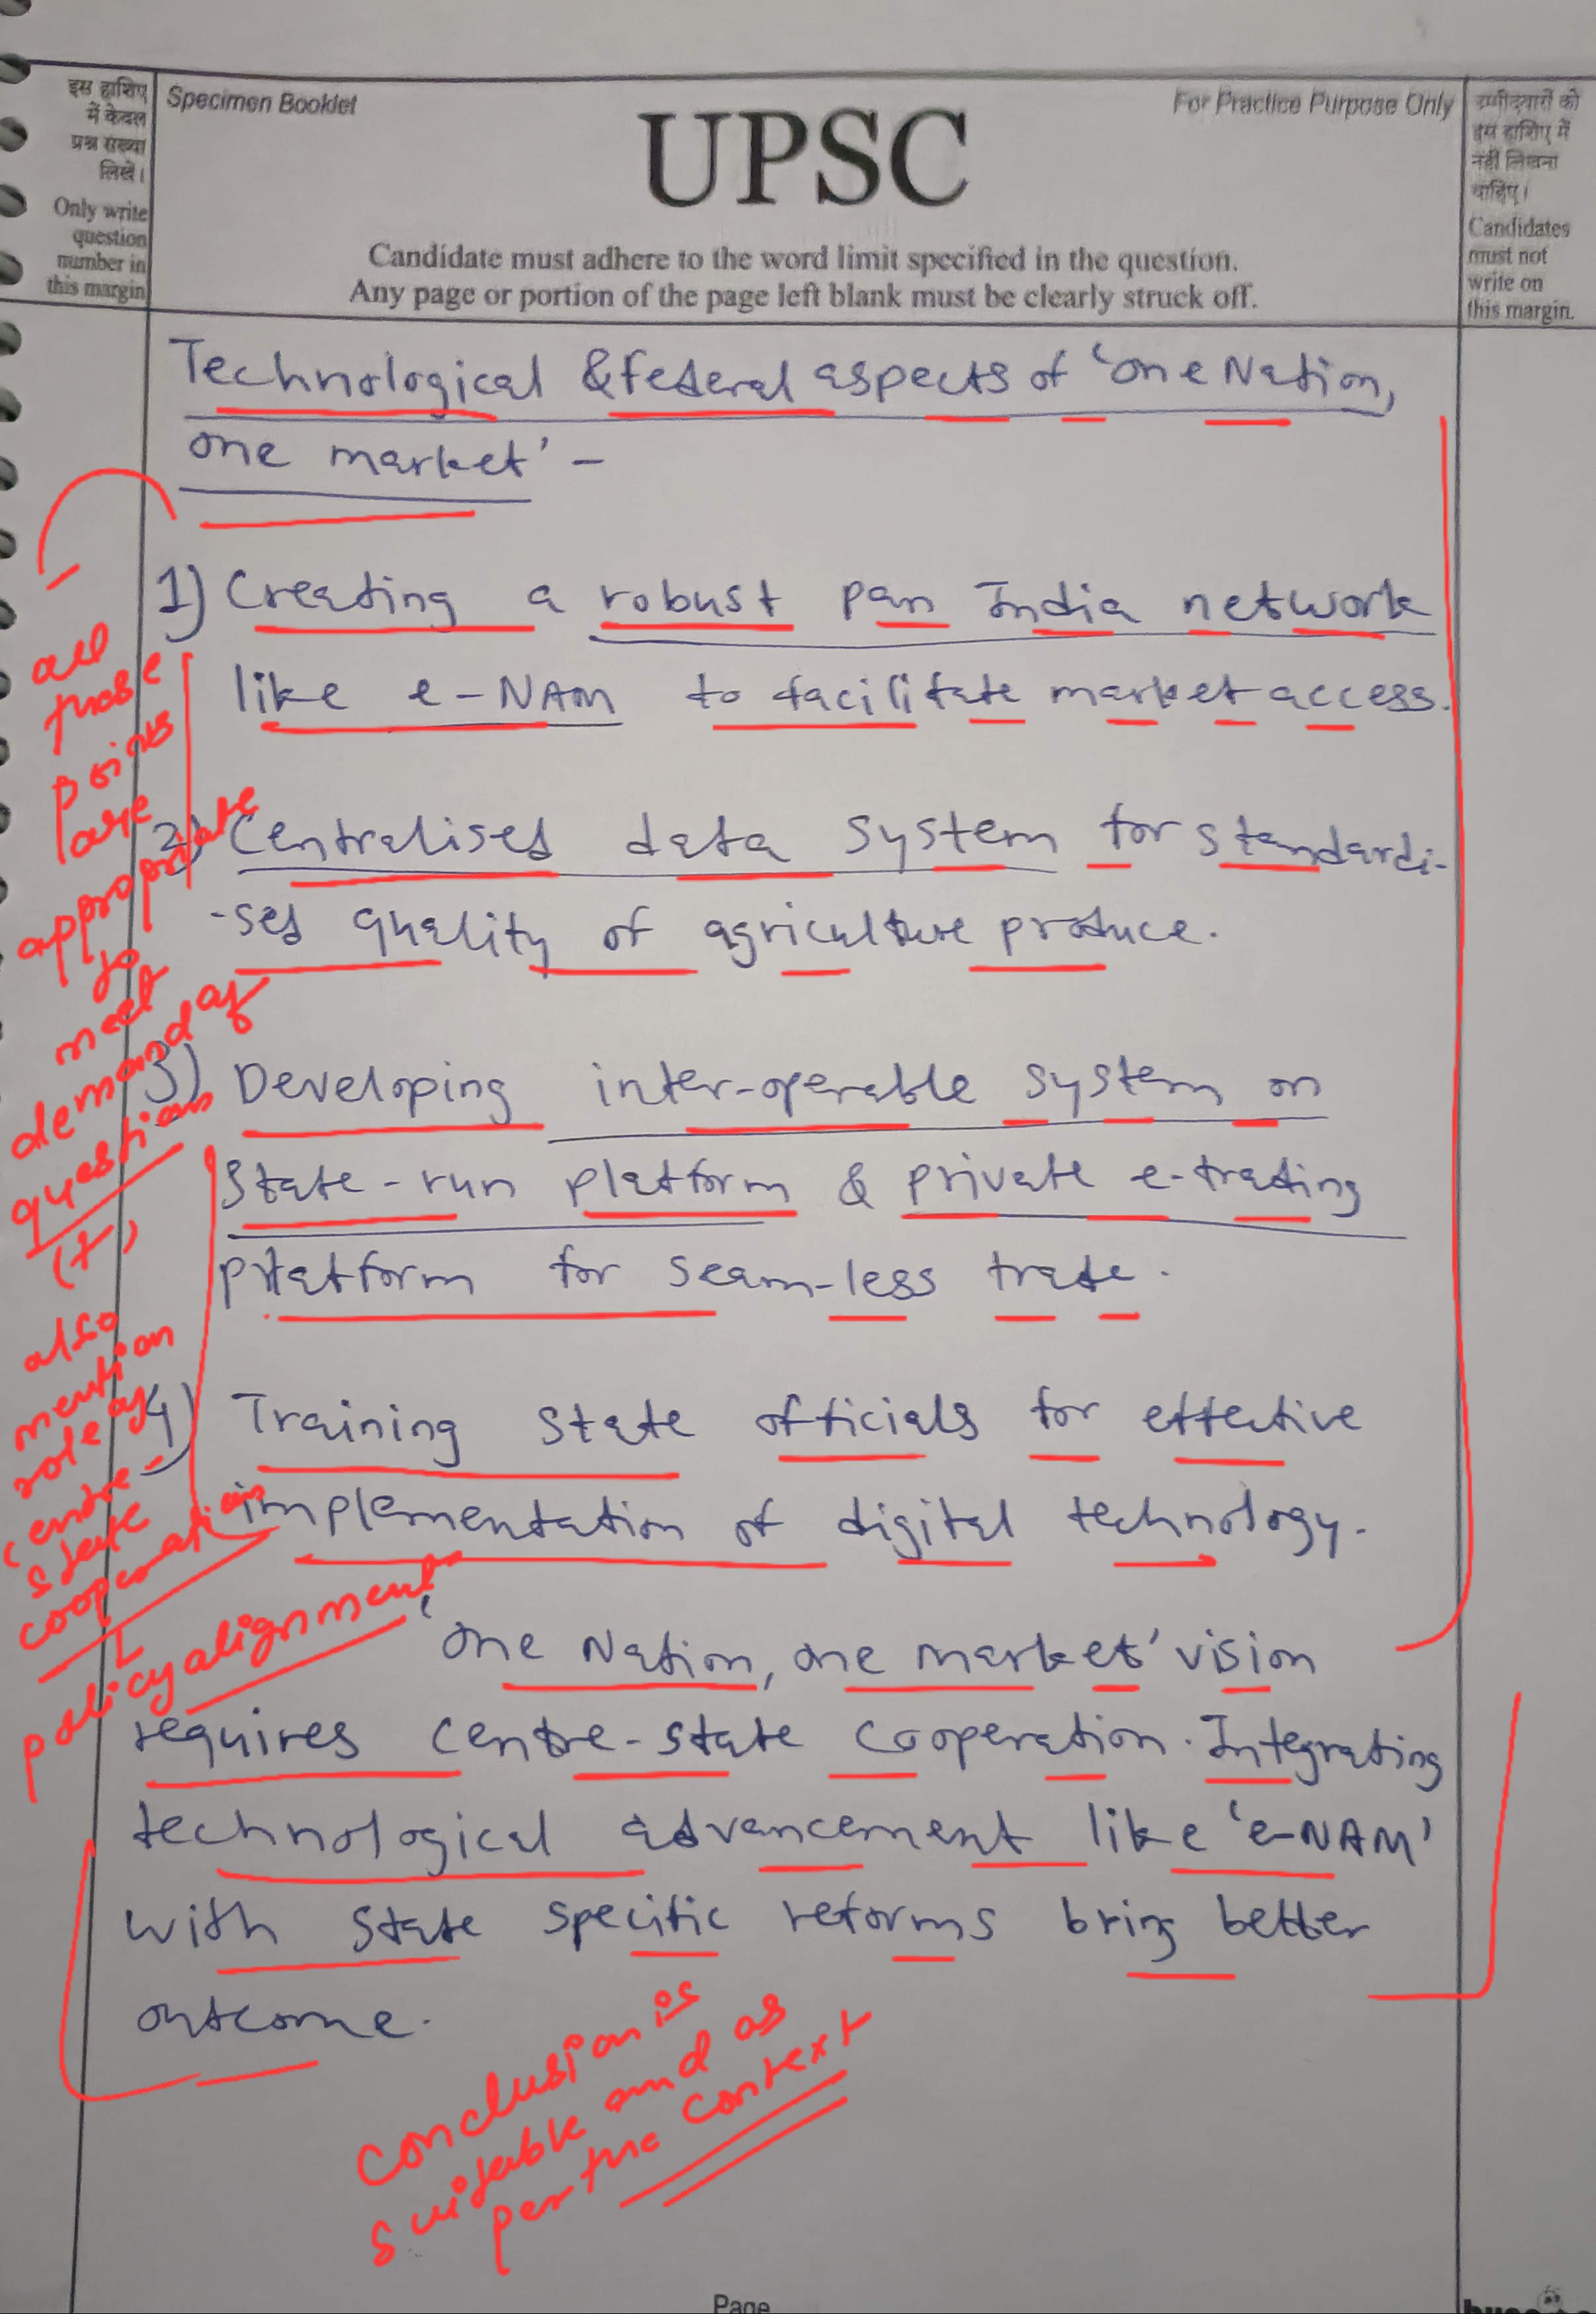 इस हाशिए
में केवल
प्रश्न संख्या
लिखें।
Only write
question
number in
this margin
Specimen Booklet
For Practice Purpose Only
UPSC
Candidate must adhere to the word limit specified in the question.
Any page or portion of the page left blank must be clearly struck off.
उम्मीदवारों को
इस हाशिए में
नहीं लिखना
चाहिए।
Candidates
must not
write on
this margin.
Technological & federal aspects of 'one Nation,
one market' –
1) Creating a robust pan India network
like e-NAM to facilitate market access.
2) Centralised data system for standardi-
-sed quality of agriculture produce.
3) Developing inter-operable system on
State-run platform & private e-trading
platform for seam-less trade.
4) Training state officials for effective
implementation of digital technology.
'one Nation, one market' vision
requires centre-state cooperation. Integrating
technological advancement like 'e-NAM'
with state specific reforms bring better
outcome.
all
these
points
are
appropriate
to
meet
demand of
question
(+)
also
mention
role of
centre-
state
cooperation
policy alignment
conclusion is
suitable and as
per the context
Page